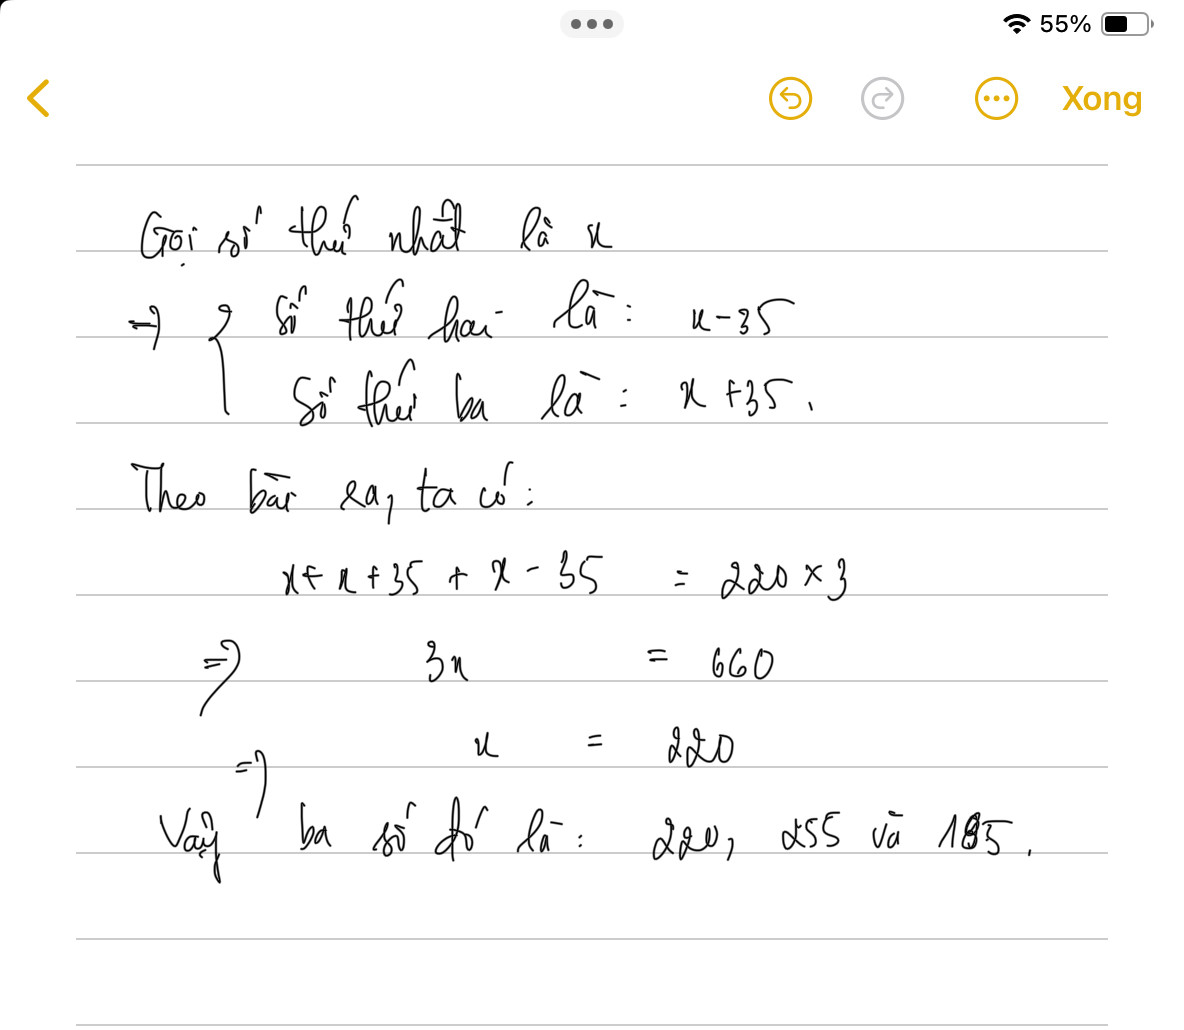 55%
Xong
Gọi số thứ nhất là x
=> { Số thứ hai là : x - 35
Số thứ ba là : x + 35.
Theo bài ra, ta có :
x + x + 35 + x - 35 = 220 × 3
=> 3x = 660
=> x = 220
Vậy ba số đó là : 220, 255 và 185.